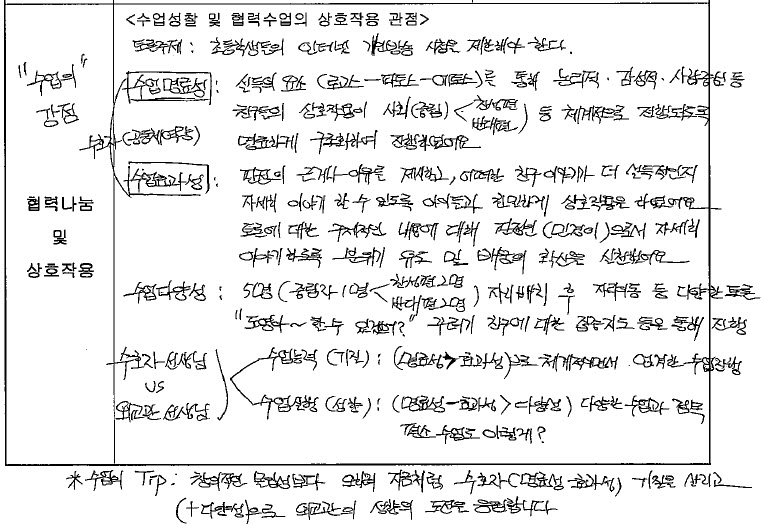 <수업성찰 및 협력수업의 상호작용 관점>
토론주제 : 초등학생들의 인터넷 개인방송 시청은 제한해야 한다.
"수업의"
강점
수업명료성 : 설득의 요소 (로고스-파토스-에토스)를 통해 논리적·감성적·사람중심 등
친구들의 상호작용이 사회(중립) < 찬성편 반대편 ) 등 체계적으로 진행되도록
수호자 (공동체역량)
명료하게 구조화하여 진행하였어요
수업효과성 : 의 근거나 이유를 제시하고, 어떠한 친구 이야기가 더 설득적인지
자세히 이야기 할 수 있도록 아이들과 친밀하게 상호작용을 하였어요
협력나눔
및
상호작용
토론에 대한 구체적인 내용에 대해 (민정이)으로서 자세히
이야기하도록 분위기 유도 및 배움의 확산을 실천했어요
수업다양성 : 50명 (중립자 10명 < 찬성편 20명 반대편 20명 ) 자리배치 후 자리이동 등 다양한 토론
"도영아~ 할 수 있겠어?" 친구에 대한 집중지도 등을 통해 진행
수호자 선생님
VS
외교관 선생님
수업능력 (기질) : (명료성>효과성)으로 체계적이면서 연계한 수업진행
수업실행 (성찰) : (명료성-효과성>다양성) 다양한 수업과 접목
평소 수업도 이렇게?
* 수업의 Tip : 창의적인 선생님답다 오늘의 지금처럼 수호자(명료성-효과성) 기질을 살리고
(+다양성)으로 외교관의 성향의 도전을 응원합니다